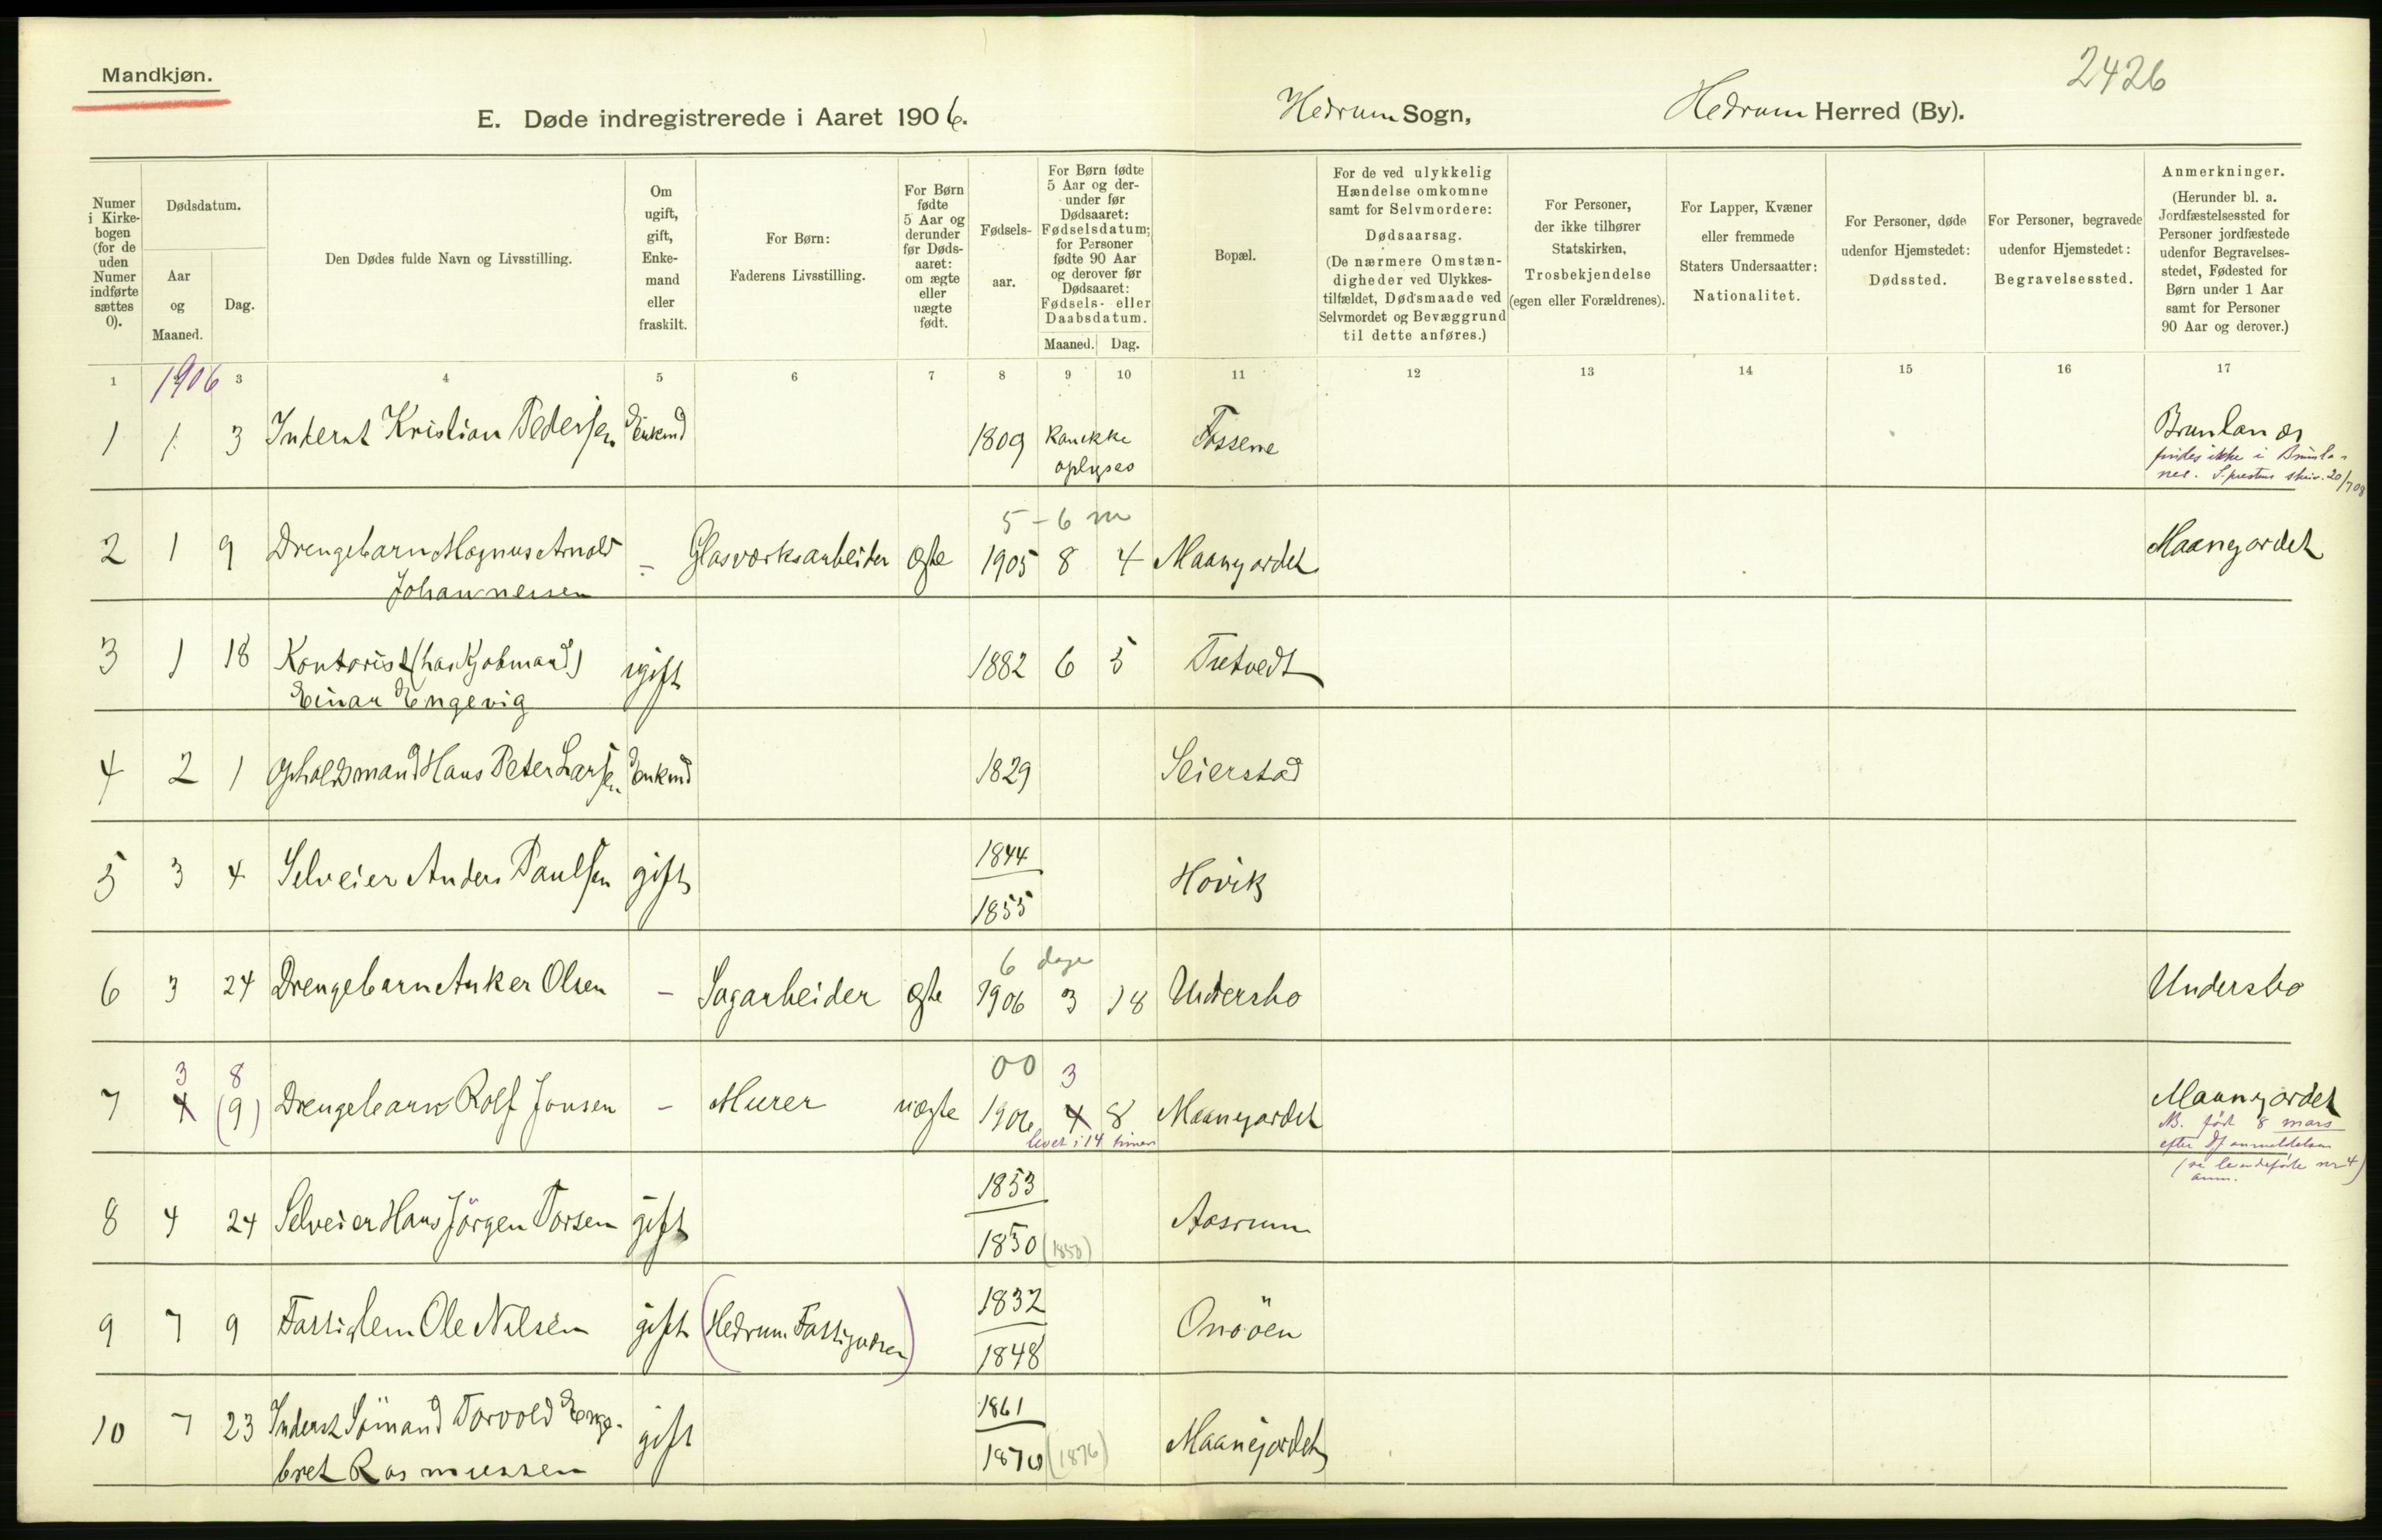 2426
Mandkjøn.
E. Døde indregistrerede i Aaret 1906. Hedrum Sogn, Hedrum Herred (By).
Numer i Kirke-bogen (for de uden Numer indførte sættes 0).
Dødsdatum.
Aar og Maaned.
Dag.
Den Dødes fulde Navn og Livsstilling.
Om ugift, gift, Enke-mand eller fraskilt.
For Børn:
Faderens Livsstilling.
For Børn fødte 5 Aar og derunder før Døds-aaret: om ægte eller uægte født.
Fødsels-aar.
For Børn fødte 5 Aar og der-under før Dødsaaret: Fødselsdatum; for Personer fødte 90 Aar og derover før Dødsaaret: Fødsels- eller Daabsdatum.
Maaned. Dag.
Bopæl.
For de ved ulykkelig Hændelse omkomne samt for Selvmordere: Dødsaarsag. (De nærmere Omstæn-digheder ved Ulykkes-tilfældet, Dødsmaade ved Selvmordet og Bevæggrund til dette anføres.)
For Personer, der ikke tilhører Statskirken, Trosbekjendelse (egen eller Forældrenes).
For Lapper, Kvæner eller fremmede Staters Undersaatter: Nationalitet.
For Personer, døde udenfor Hjemstedet: Dødssted.
For Personer, begravede udenfor Hjemstedet: Begravelsessted.
Anmerkninger. (Herunder bl. a. Jordfæstelsessted for Personer jordfæstede udenfor Begravelses-stedet, Fødested for Børn under 1 Aar samt for Personer 90 Aar og derover.)
1 3 4 5 6 7 8 9 10 11 12 13 14 15 16 17
1906
1 1 3 Inderst Kristian Pedersen Enkmd 1809 kan ikke Fossene Brunlanæs
oplyses findes ikke i Brunla-
nes. S.prestens skriv. 20/7 08
5 - 6 m
2 1 9 Drengebarn Magnus Arnold - Glasværksarbeider ægte 1905 8 4 Maanejordet Maanejordet
Johannesen
3 1 18 Kontorist (has Kjøbmand) ugift 1882 6 5 Tutvedt
Einar Engevig
4 2 1 Opholdsmand Hans Peter Larsen Enkmd 1829 Seierstad
5 3 4 Selveier Anders Paulsen gift 1844 Hovik
1855
6 dage
6 3 24 Drengebarn Anker Olsen - Sagarbeider ægte 1906 3 18 Undersbo Undersbo
3 8 00 3
7 4 (9) Drengebarn Rolf Jonsen - Murer uægte 1906 4 8 Maanejordet Maanejordet
levet i 14 timer NB. født 8 mars
efter Df anmeldelsen
(se levendefødte nr 4)
anm.
8 4 24 Selveier Hans Jörgen Torsen gift 1853 Aasrum
1850 (1850)
9 7 9 Fattiglem Ole Nilsen gift (Hedrum Fattigvæsen) 1832 Onsöen
1848
10 7 23 Inderst Sömand Torvold Enge- gift 1861 Maanejordet
bret Rasmussen 1876 (1876)